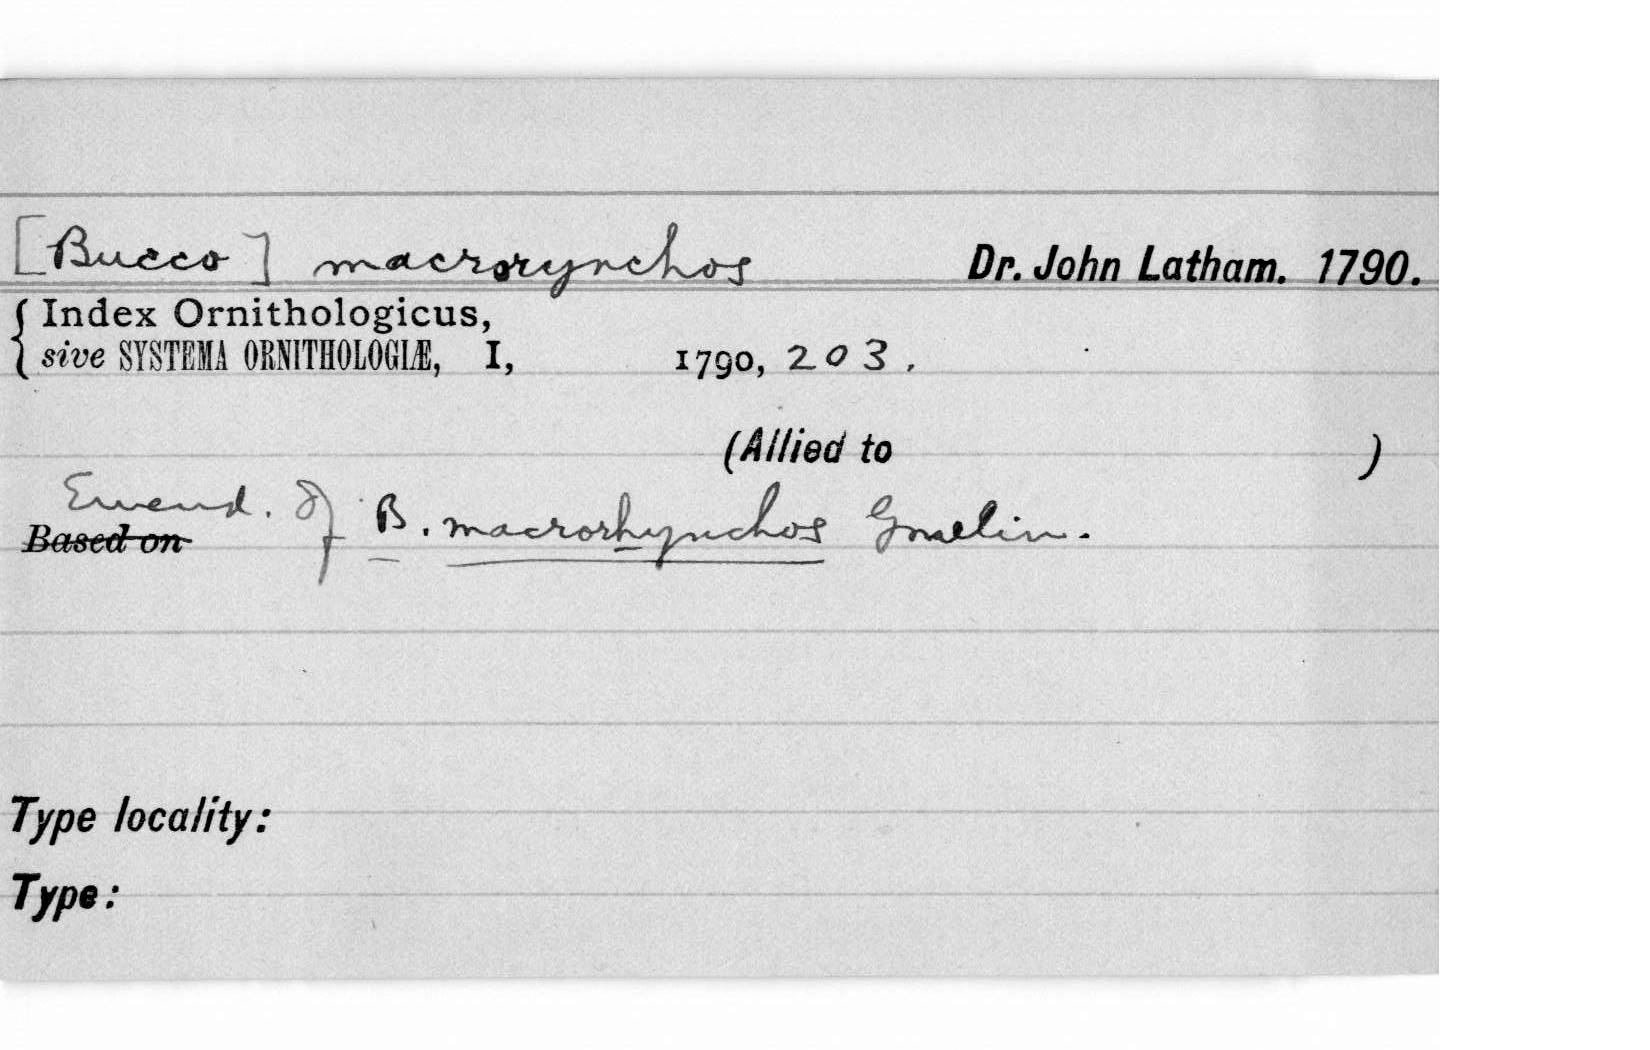 [Bucco] macrorynchos Dr. John Latham. 1790.
Index Ornithologicus,
sive SYSTEMA ORNITHOLOGIÆ, I, 1790, 203.
(Allied to )
Emend. of B. macrorhynchos Gmelin.
Based on
Type locality:
Type: